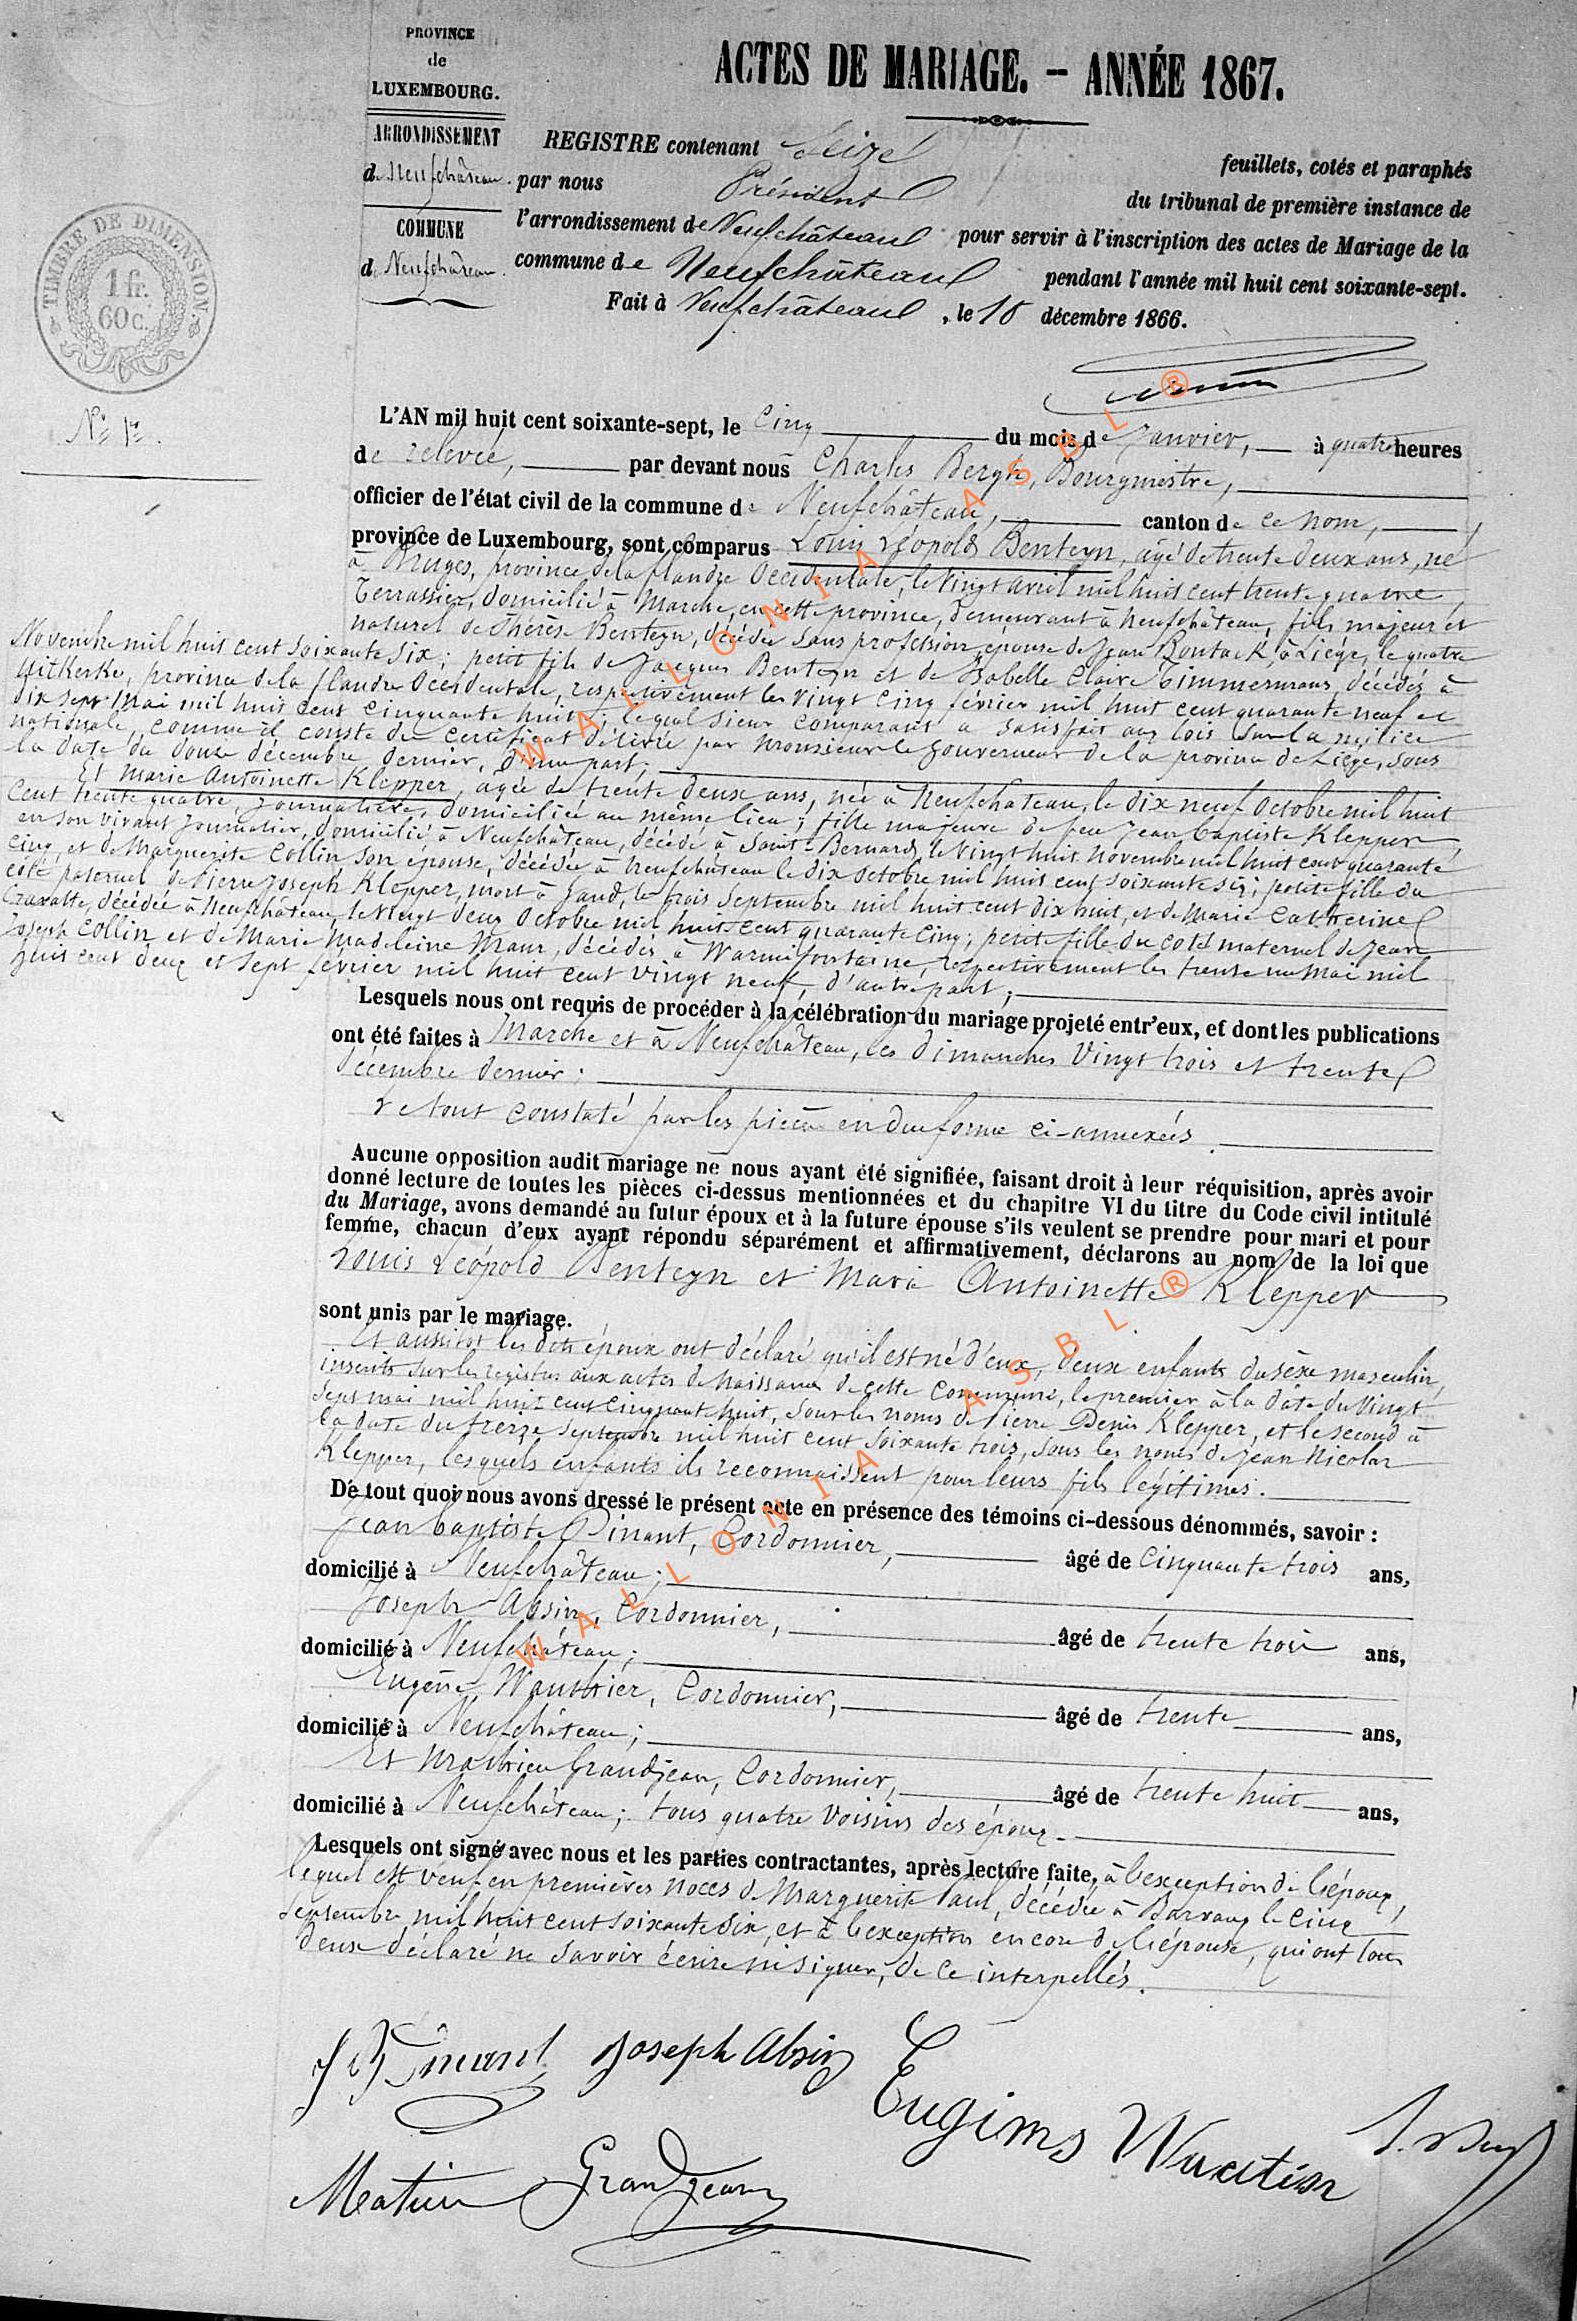 PROVINCE
de
LUXEMBOURG.
ARRONDISSEMENT
de Neufchâteau.
COMMUNE
de Neufchâteau.
ACTES DE MARIAGE. – ANNÉE 1867.
REGISTRE contenant Seize feuillets, cotés et paraphés
par nous Président du tribunal de première instance de
l'arrondissement de Neufchâteau pour servir à l'inscription des actes de Mariage de la
commune de Neufchâteau pendant l'année mil huit cent soixante-sept.
Fait à Neufchâteau, le 10 décembre 1866.
TIMBRE DE DIMENSION.
1 fr.
60 c.
No 1er.
L'AN mil huit cent soixante-sept, le Cinq du mois de Janvier, à quatre heures
de relevée, par devant nous Charles Bergh, Bourgmestre,
officier de l'état civil de la commune de Neufchâteau, canton de ce nom,
province de Luxembourg, sont comparus Louis Léopold Benteyn, âgé de trente deux ans, né
à Bruges, province de la flandre Occidentale, le vingt avril mil huit cent trente quatre,
Terrassier, domicilié à Marche, en cette province, demeurant à Neufchâteau, fils majeur et
naturel de Thérèse Benteyn, décédée sans profession, épouse de Jean Boutack, à Liége, le quatre
Novembre mil huit cent soixante six; petit fils de Jacques Benteyn et de Isabelle Claire Timmermans, décédés à
Uitkerke, province de la flandre Occidentale, respectivement les vingt cinq février mil huit cent quarante neuf et
dix sept mai mil huit cent cinquante huit; lequel sieur comparant a satisfait aux lois sur la milice
nationale, comme il conste du certificat délivré par Monsieur le gouverneur de la province de Liége, sous
la date du douze décembre dernier, d'une part;
Et Marie Antoinette Klepper, agée de trente deux ans, née à Neufchateau, le dix neuf Octobre mil huit
Cent trente quatre, Journalière, domiciliée au même lieu; fille majeure de feu Jean baptiste Klepper,
en son vivant Journalier, domicilié à Neufchâteau, décédé à Saint-Bernard, le vingt huit Novembre mil huit cent quarante
cinq, et de Marguerite Collin son épouse, décédée à Neufchâteau le dix octobre mil huit cent soixante six; petite fille du
côté paternel de Pierre Joseph Klepper, mort à Gand, le trois Septembre mil huit cent dix huit, et de Marie Catherine
décédée à Neufchâteau, le vingt deux Octobre mil huit cent quarante cinq; petite fille du coté maternel de Jean
Joseph Collin et de Marie Madeleine Maur, décédés à Warmifontaine, respectivement les trente un Mai mil
huit cent deux et sept février mil huit cent vingt neuf, d'autre part;
Lesquels nous ont requis de procéder à la célébration du mariage projeté entr'eux, et dont les publications
ont été faites à Marche et à Neufchâteau, les dimanches vingt trois et trente
décembre dernier;
Le tout constaté par les pièces en due forme ci-annexées.
Aucune opposition audit mariage ne nous ayant été signifiée, faisant droit à leur réquisition, après avoir
donné lecture de toutes les pièces ci-dessus mentionnées et du chapitre VI du titre du Code civil intitulé
du Mariage, avons demandé au futur époux et à la future épouse s'ils veulent se prendre pour mari et pour
femme, chacun d'eux ayant répondu séparément et affirmativement, déclarons au nom de la loi que
Louis Léopold Benteyn et Marie Antoinette Klepper
sont unis par le mariage.
Et aussitot les dits époux ont déclaré qu'il est né d'eux, deux enfants du sèxe masculin,
inscrits sur les registres aux actes de Naissances de cette commune, le premier à la date du vingt
sept mai mil huit cent cinquante huit, sous les noms de Pierre Denis Klepper, et le second à
la date du treize Septembre mil huit cent soixante trois, sous les noms de Jean Nicolas
Klepper, lesquels enfants ils reconnaissent pour leurs fils légitimes.
De tout quoi nous avons dressé le présent acte en présence des témoins ci-dessous dénommés, savoir :
Jean baptiste Dinant, Cordonnier, âgé de Cinquante trois ans,
domicilié à Neufchâteau;
Joseph Absin, Cordonnier, âgé de trente trois ans,
domicilié à Neufchâteau;
Eugène Wauthier, Cordonnier, âgé de trente ans,
domicilié à Neufchâteau;
Et Mathieu Grandjean, Cordonnier, âgé de trente huit ans,
domicilié à Neufchâteau; tous quatre voisins des époux.
Lesquels ont signé avec nous et les parties contractantes, après lecture faite, à l'exception de l'époux,
lequel est veuf en premières noces de Marguerite Paul, décédée à Barvaux le cinq
Septembre mil huit cent soixante six, et à l'exception encore de l'épouse, qui ont tous
deux déclaré ne savoir écrire ni signer, de ce interpellés.
JB Dinant Joseph Absin
Eugims Wautier
Matieu Grandjean
WALLONIA ASBL ®
WALLONIA ASBL ®